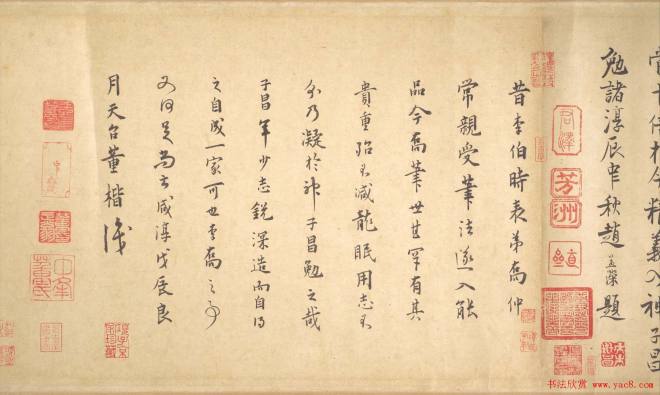 今精義入神子昌
勉諸淳辰中秋趙孟濚題
芳洲
昔李伯時表弟喬仲
常親受筆法遂入能
品今喬筆世甚罕有其
貴重殆不減龍眠用志不
分乃凝於神子昌勉之哉
子昌年少志銳深造而自得
之自成一家可也李喬之事
又何足尚云咸淳戊辰良
月天台董楷識
书法欣赏 www.yac8.com